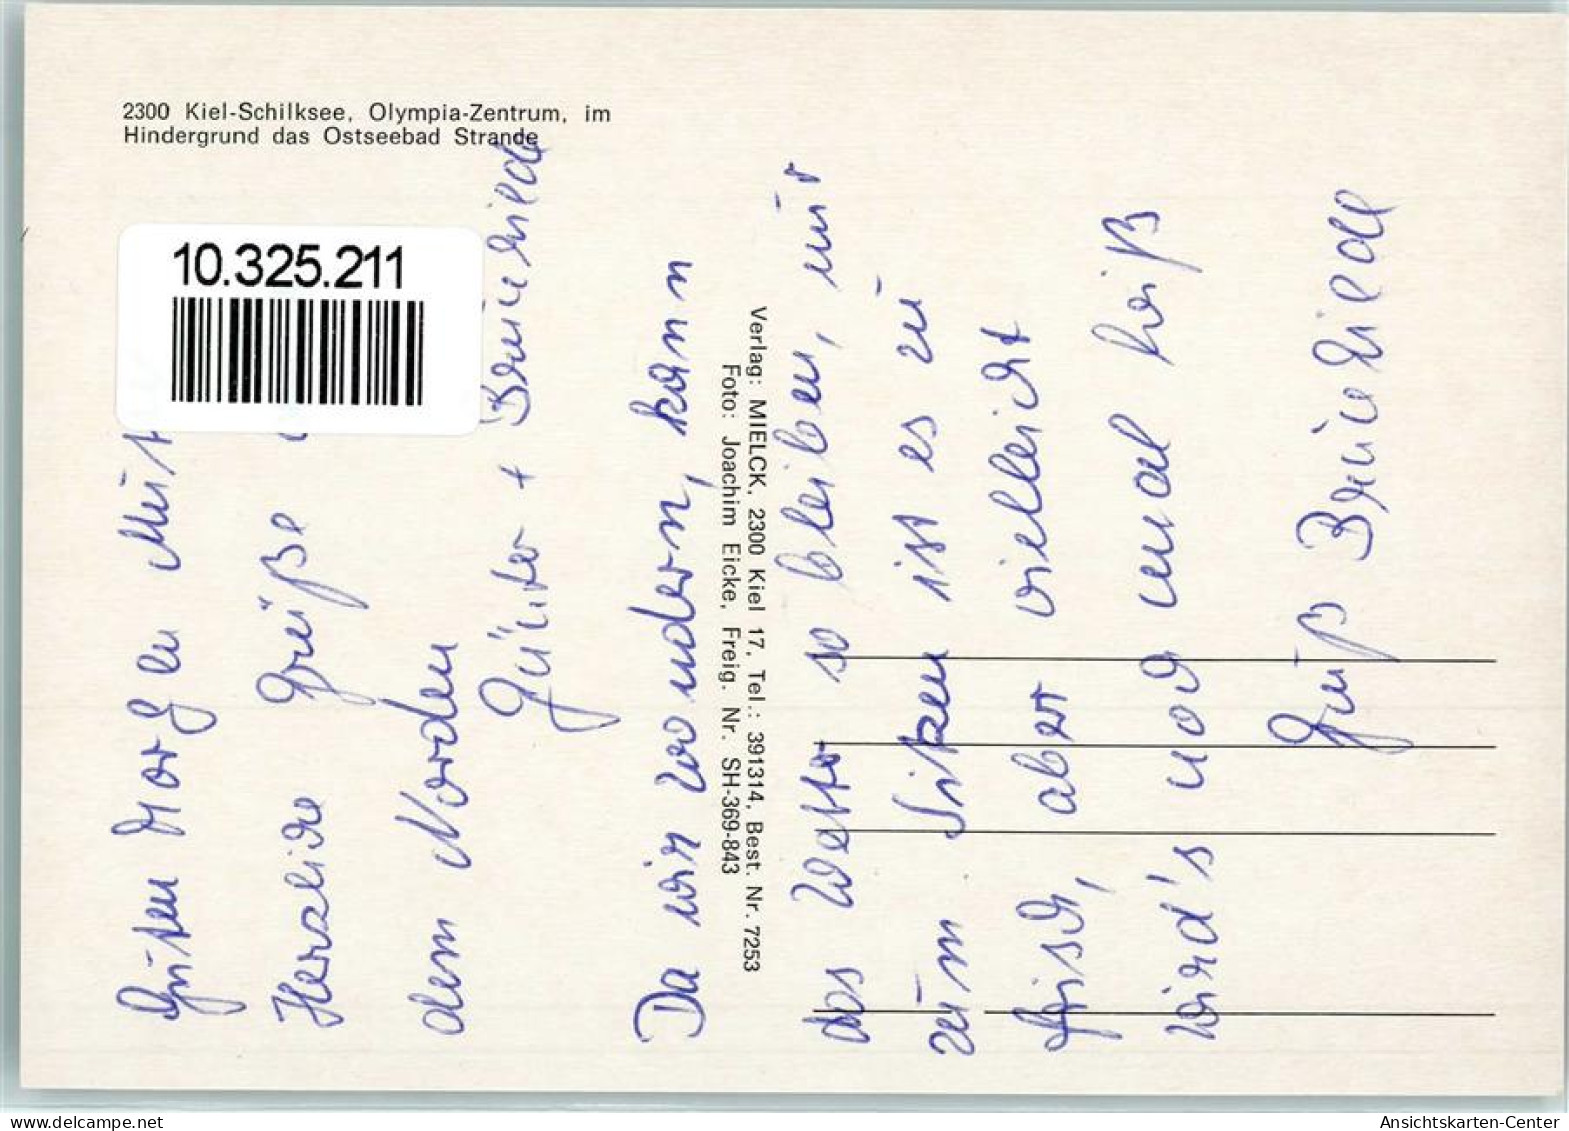 2300 Kiel-Schilksee, Olympia-Zentrum, im
Hindergrund das Ostseebad Strande
10.325.211
Verlag: MIELCK, 2300 Kiel 17, Tel.: 391314, Best. Nr. 7253
Foto: Joachim Eicke, Freig. Nr. SH-369-843
Guten Morgen
Herzliche Grüße
dem Norden
Günter + Brünhilde
Da wir wandern, kann
das Wetter so bleiben, nur
zum Sitzen ist es zu
frisch, aber vielleicht
wird's noch mal heiß
Gruß Brünhilde
www.delcampe.net
Ansichtskarten-Center